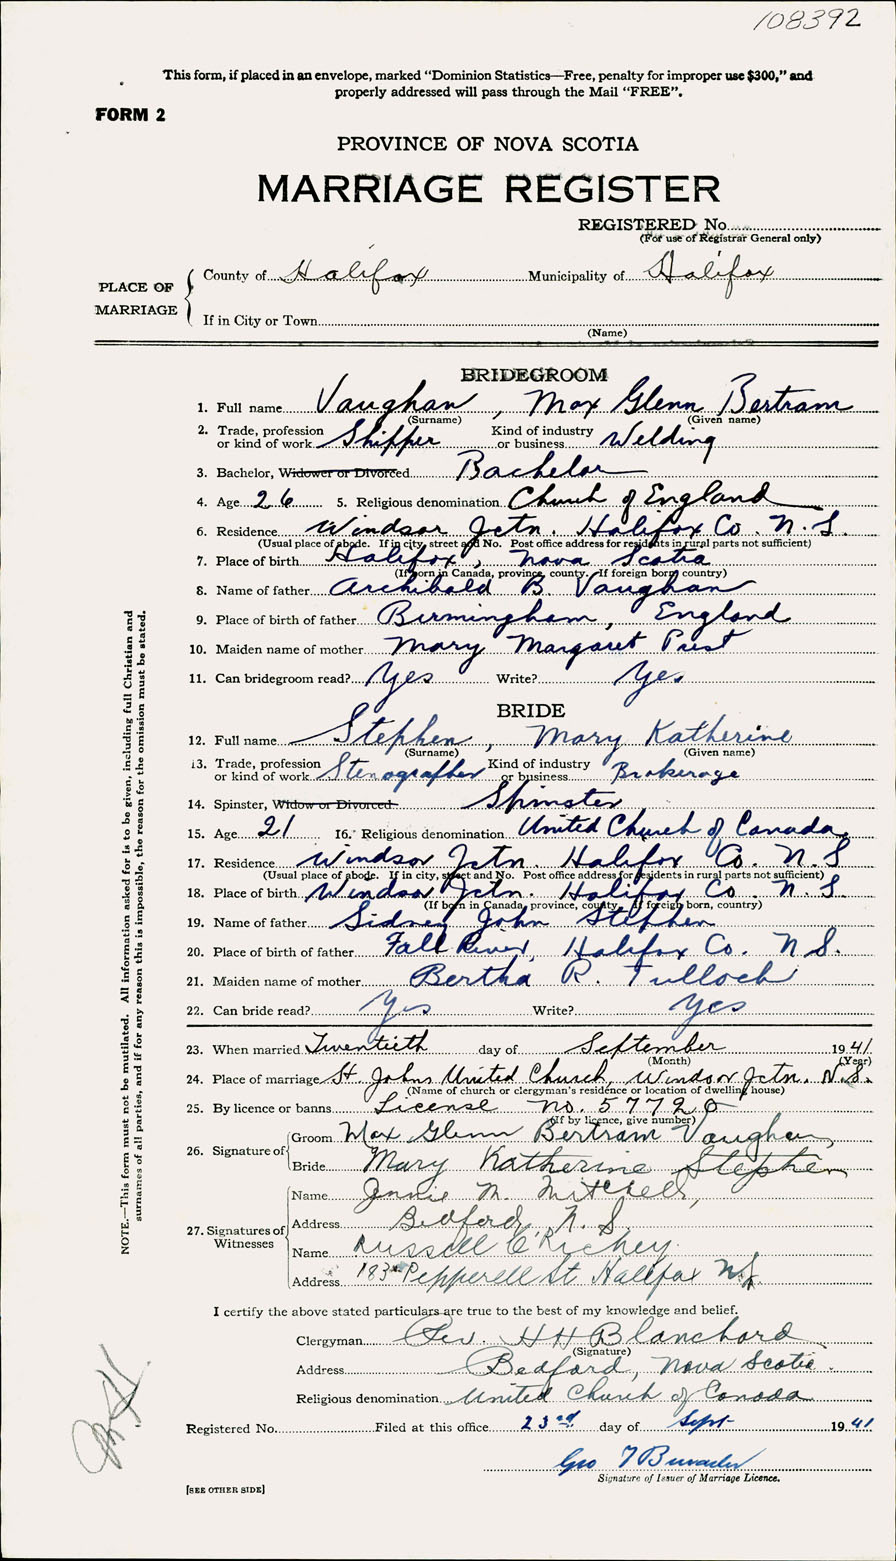 108392
This form, if placed in an envelope, marked "Dominion Statistics—Free, penalty for improper use $300," and
properly addressed will pass through the Mail "FREE".
FORM 2
PROVINCE OF NOVA SCOTIA
MARRIAGE REGISTER
REGISTERED No.
(For use of Registrar General only)
PLACE OF MARRIAGE
County of Halifax Municipality of Halifax
If in City or Town
(Name)
BRIDEGROOM
1. Full name Vaughan, Max Glenn Bertram
(Surname) (Given name)
2. Trade, profession or kind of work Shipper Kind of industry or business Welding
3. Bachelor, Widower or Divorced Bachelor
4. Age 26 5. Religious denomination Church of England
6. Residence Windsor Jctn. Halifax Co. N.S.
(Usual place of abode. If in city, street and No. Post office address for residents in rural parts not sufficient)
7. Place of birth Halifax, Nova Scotia
(If born in Canada, province, county. If foreign born, country)
8. Name of father Archibald B. Vaughan
9. Place of birth of father Birmingham, England
10. Maiden name of mother Mary Margaret Pust
11. Can bridegroom read? Yes Write? Yes
BRIDE
12. Full name Stephen, Mary Katherine
(Surname) (Given name)
13. Trade, profession or kind of work Stenographer Kind of industry or business Brokerage
14. Spinster, Widow or Divorced Spinster
15. Age 21 16. Religious denomination United Church of Canada
17. Residence Windsor Jctn. Halifax Co. N.S
(Usual place of abode. If in city, street and No. Post office address for residents in rural parts not sufficient)
18. Place of birth Windsor Jctn. Halifax Co. N.S
(If born in Canada, province, county. If foreign born, country)
19. Name of father Sidney John Stephen
20. Place of birth of father Fall River, Halifax Co. N.S.
21. Maiden name of mother Bertha R. Tulloch
22. Can bride read? Yes Write? Yes
23. When married Twentieth day of September 1941
(Month) (Year)
24. Place of marriage St. Johns United Church, Windsor Jctn. N.S.
(Name of church or clergyman's residence or location of dwelling house)
25. By licence or banns License no. 57720
(If by licence, give number)
26. Signature of
Groom Max Glenn Bertram Vaughan
Bride Mary Katherine Stephen
27. Signatures of Witnesses
Name Annie M. Mitchell,
Address Bedford, N.S.
Name Russell C Richey.
Address 183 Pepperell St Halifax N.S.
I certify the above stated particulars are true to the best of my knowledge and belief.
Clergyman Rev. H H Blanchard
(Signature)
Address Bedford, Nova Scotia.
Religious denomination United Church of Canada
Registered No. Filed at this office 23rd day of Sept 1941
Geo T
Signature of Issuer of Marriage Licence.
[SEE OTHER SIDE]
NOTE.—This form must not be mutilated. All information asked for is to be given, including full Christian and
surnames of all parties, and if for any reason this is impossible, the reason for the omission must be stated.